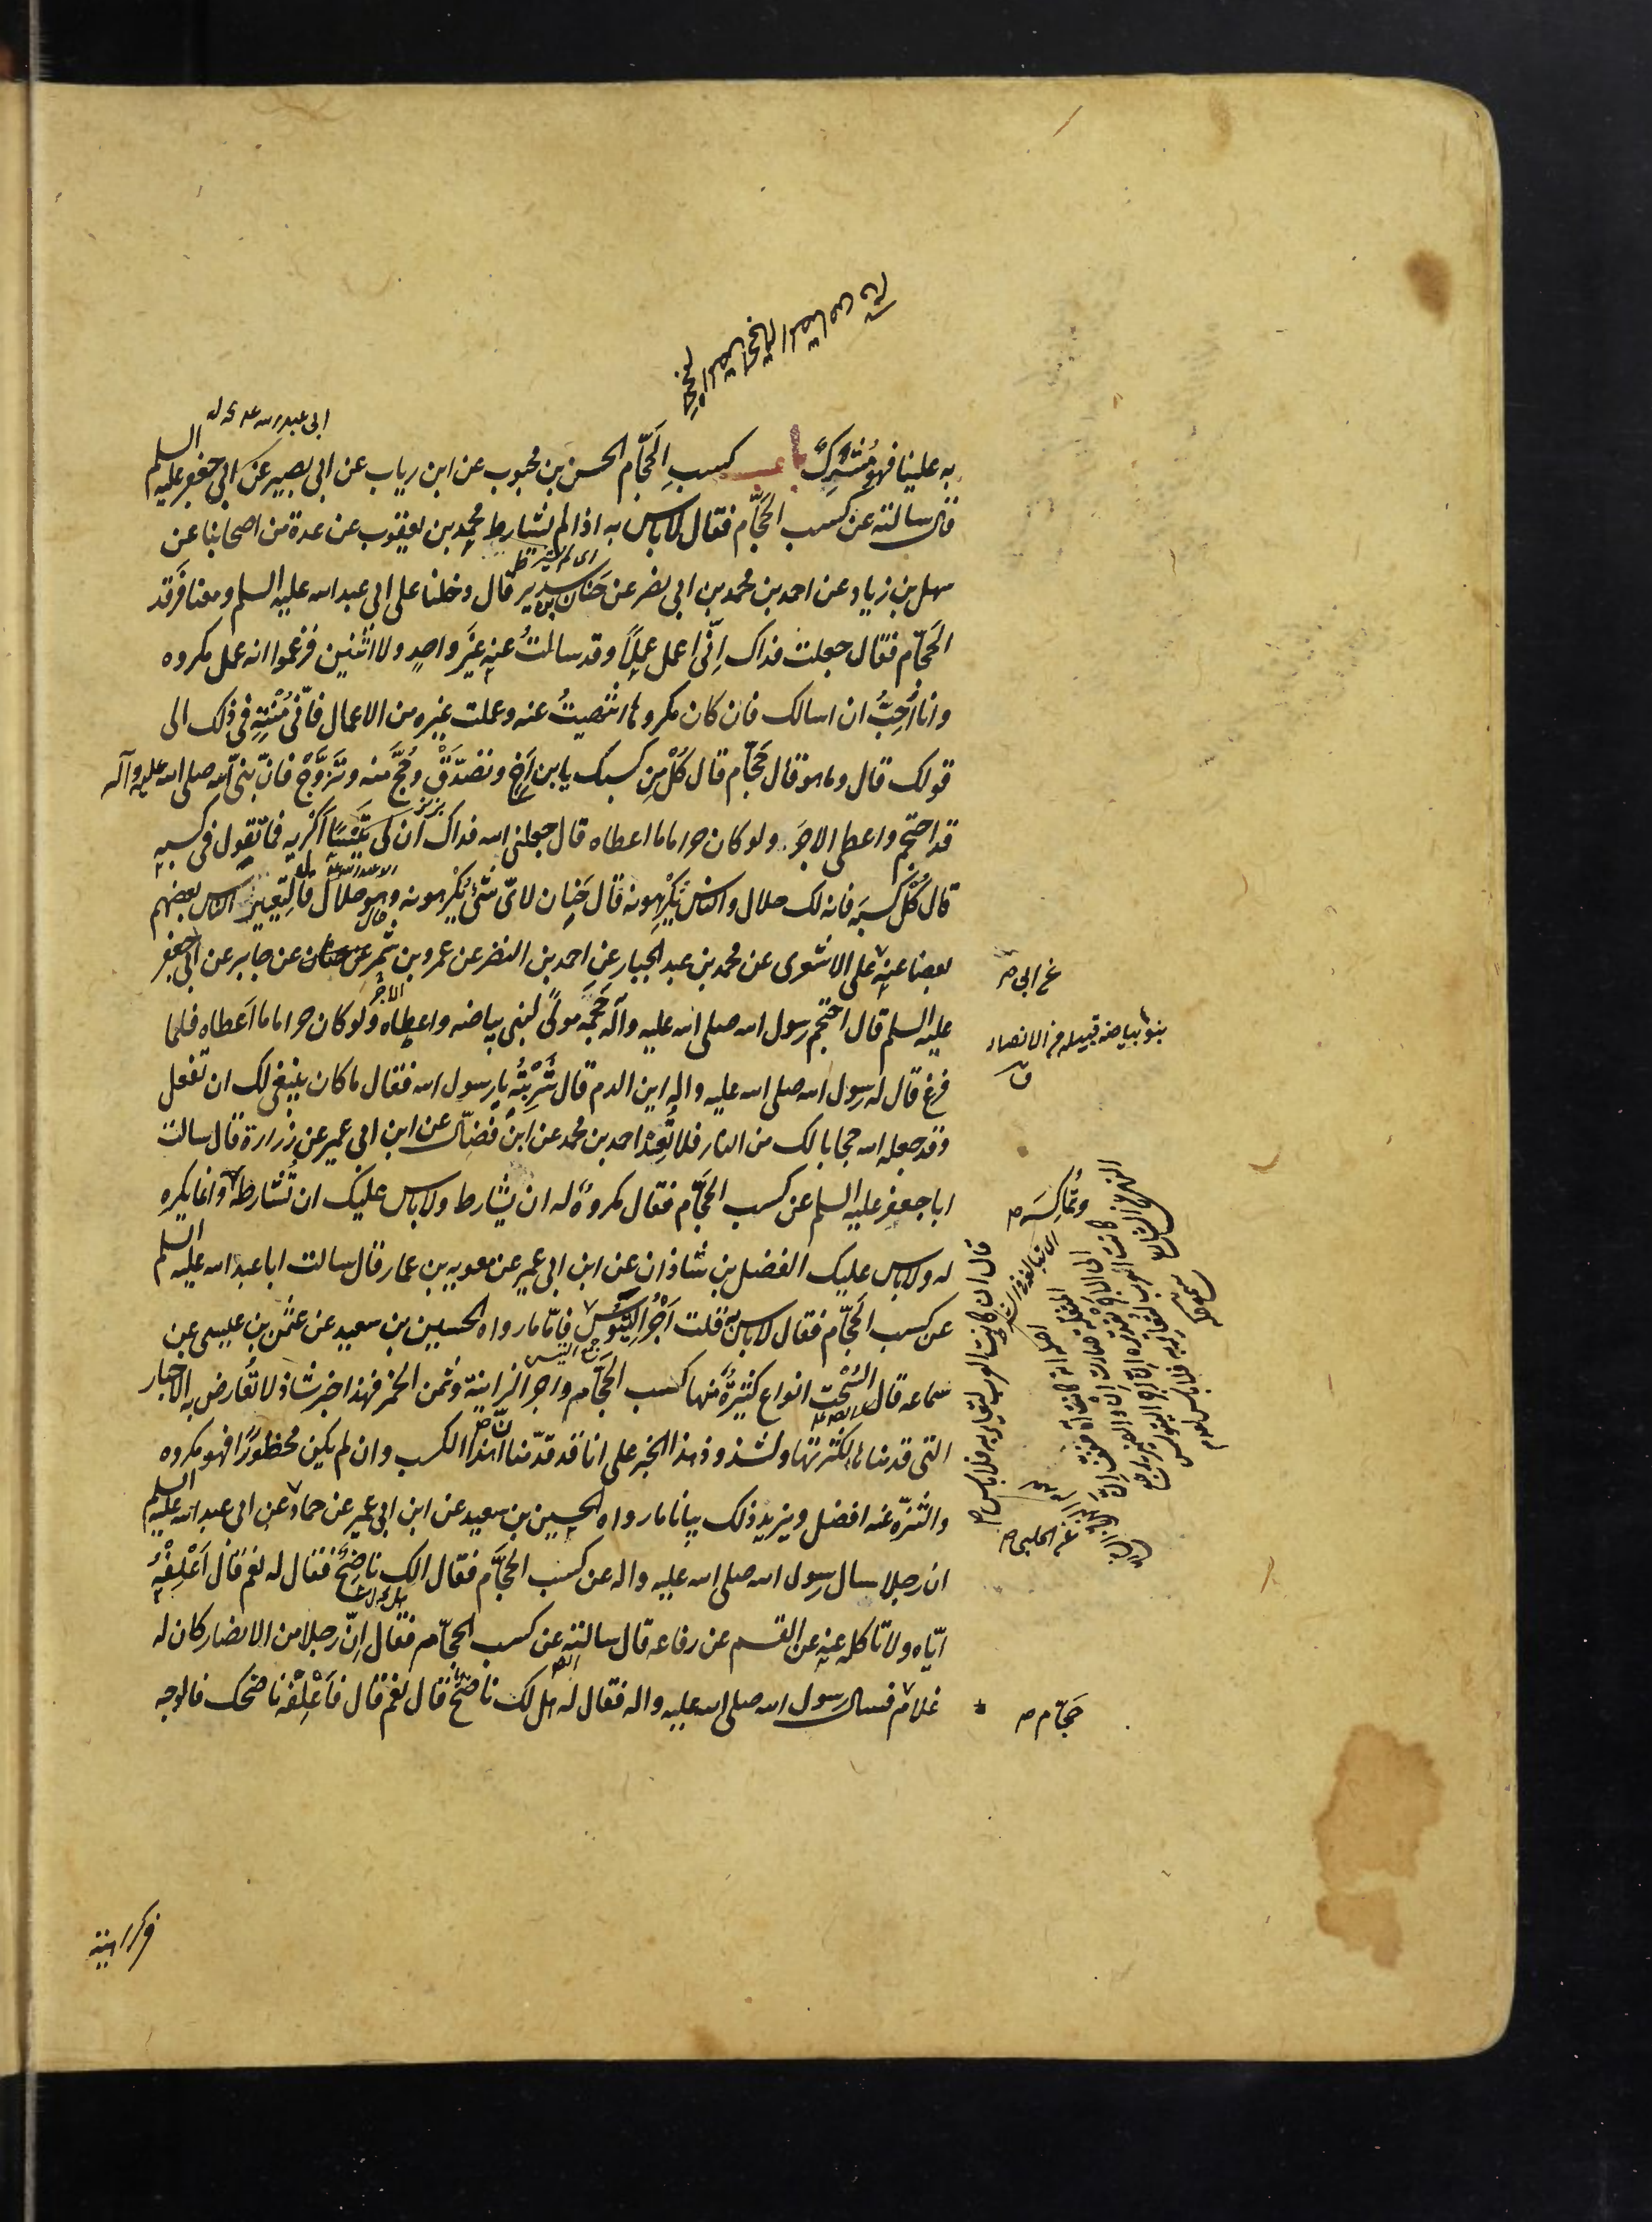 ابى عبد الله
به علينا فهو مُشْرِكٌ باب كسبِ الحَجّام الحسن بن محبوب عن ابن رياب عن ابى بصير عن ابى جعفر عليه السلم
قال سالته عن كسب الحَجّام فقال لا باس به اذا لم يشارط محمد بن يعقوب عن عدة من اصحابنا عن
سهل بن زياد عن احمد بن محمد بن ابى نصر عن حَنان بن سدير قال دخلنا على ابى عبد الله عليه السلم ومعنا فَرقد
الحَجّام فقال جعلت فداك اِنّى اعمل عملاً وقد سالتُ عنه غيَر واحدٍ ولا اثنين فزعموا انه عمل مكروه
وانا اُحِبُّ ان اسالك فان كان مكروها انتهيتُ عنه وعملت غيره من الاعمال فانّى مُنْتَهٍ فى ذلك الى
قولك قال وما هو قال حَجّام قال كُلْ مِن كسبك يا بن اَخِ وتصدّقْ وحُجَّ منه وتَزَوَّجْ فانّ نبىّ الله صلى الله عليه وآله
قد احتجم واعطى الاجرَ ولو كان حراما ما اعطاه قال جعلنى الله فداك ان لى تَيْسًا اُكْرِيه فما تقول فى كسبه
قال كُلْ كسبَه فانه لك حلال والناس يَكْرَهونه قال حَنان لاىّ شئ يَكْرهونه وهو حلال قال لِتَعْيير الناس بعضهم
بعضا عنه على الاشعرى عن محمد بن عبد الجبار عن احمد بن النضر عن عمرو بن شمر عن جابر عن ابى جعفر
عن ابى ص
عليه السلم قال احتجم رسول الله صلى الله عليه وآله حَجَمَه مولًى لبنى بياضه واعطاه الاجرَ ولو كان حراما ما اَعطاه فلما
بنو بياضه قبيله من الانصار
ق
فرغ قال له رسول الله صلى الله عليه واله اين الدم قال شَرِبْتُه يا رسول الله فقال ما كان ينبغى لك ان تفعل
وقد جعله الله حجابا لك من النار فلا تُعِدْ احمد بن محمد عن ابن فضّال عن ابن ابى عمير عن زرارة قال سالت
ابا جعفر عليه السلم عن كسب الحَجّام فقال مكروهٌ له ان يشارط ولا باس عليك ان تُشارطه وانما يكره
وتُماكِسَه ص
له ولا باس عليك الفضل بن شاذان عن ابن ابى عمير عن معويه بن عمار قال سالت ابا عبد الله عليه السلم
عن كسب الحَجّام فقال لا باس به قلت اَجْر التُّيُوس فامّا ما رواه الحسين بن سعيد عن عثمن بن عيسى عن
قال ان كانت العرب لتعاير به فلا باس ص
جمع التيس
سماعه قال السُّحْت انواع كثيرةٌ منها كسب الحَجّام واجر الزانية وثمن الخمر فهذا خبر شاذ لا تُعارض به الاخبار
التى قدمناها لكثرتها ولشذوذ هذا الخبر على انا قد قدّمنا انّ هذا الكسب وان لم يكن محظورًا فهو مكروه
والتنزّه عنه افضل ويزيد ذلك بيانا ما رواه الحسين بن سعيد عن ابن ابى عمير عن حماد عن ابى عبد الله عليه السلم
عن الحلبى ص
ان رجلا سال رسول الله صلى الله عليه واله عن كسب الحَجّام فقال الك ناضِحٌ فقال له نعم قال اَعْلِفْهُ
ايّاه ولا تاكله عنه عن القسم عن رفاعه قال سالته عن كسب الحجّام فقال اِنّ رجلا من الانصار كان له
غلام فسال رسول الله صلى الله عليه واله فقال له هل لك ناضحٌ قال نعم قال فاَعْلِفْه ناضحك فالوجه
حَجّام ص